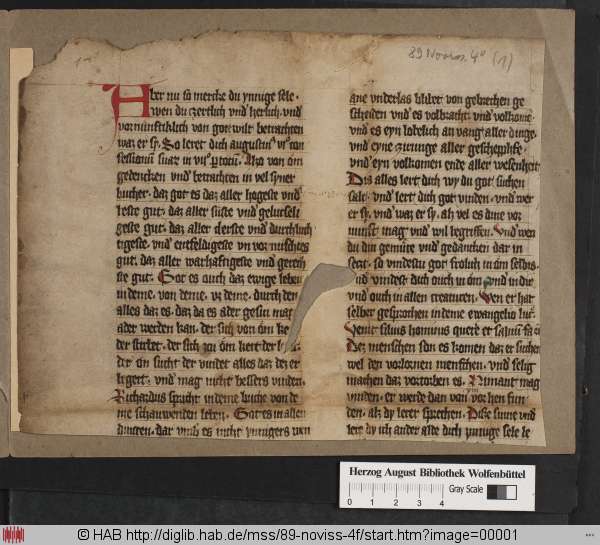 89 Noviss. 4° (1)
Aber nu so mercke du ynnige sele
wen du czertlich und herlich und
vornünfticlich von got wilt betrachten
waz er sy. So leret dich augustinus
gedencken und betrachten in vel syner
bucher. daz got es daz aller hogeste und
beste gut. daz aller süste und
geste gut. daz aller
tigeste. und entfeldigeste
gut. daz aller warhaftigeste und gerech
ste gut. Got es ouch daz ewige leben
in deme. von deme. durch den
alles daz es. daz da es ader gesin mag
ader werden kan. der sich von om ke
der stirbet. der sich zcu om kert der
der on sucht der vindet alles daz der er
begert. und mag nicht bessers vinden.
Richardus spricht in deme buche von de
me schauwenden leben. Got es in allen
dingen. dar umb es nicht ynnigers wen
ane underlas blibet von gebrechen ge
scheiden und es volbracht und volkome
und es eyn lobelich an vang aller dinge
und eyne czirunge aller geschephte
und eyn volkomen ende aller wesenheit
Dis alles lert dich wy du got suchen
salt. und lert dich got vinden. und wer
er sy. und waz er sy. als vel es dine vor
nunft mag und wil begriffen. Und wen
du din gemüte und gedancken dar in
setzt. so vindestu got frolich in om selbis.
und vindest dich ouch in om und in dir
und ouch in allen creaturen. Wen er hat
selber gesprochen in deme ewangelio
Venit filius hominis querere et
Dez menschen son es komen daz er suchen
wel den vorlornen menschen. und selig
machen daz vortorben es. Nimant mag
vinden. er werde dan vor hen fun
den. als dy lerer sprechen. Dise sinne und
lere dy ich ander alse dich ynnige sele le
Herzog August Bibliothek Wolfenbüttel
0 1 2 3 4
Gray Scale
© HAB http://diglib.hab.de/mss/89-noviss-4f/start.htm?image=00001